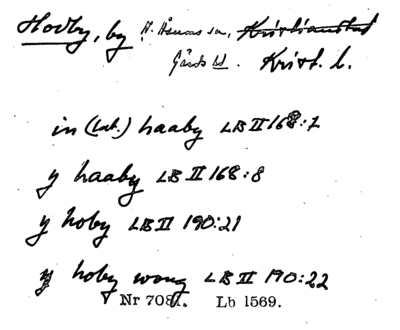 Hovby, by N. Åsums sn, Kristianstad
Gärds hd. Krist. l.
in (lat.) haaby LB II 168:7
y haaby LB II 168:8
y hoby LB II 190:21
y hoby wong LB II 190:22
Nr 708. Lb 1569.